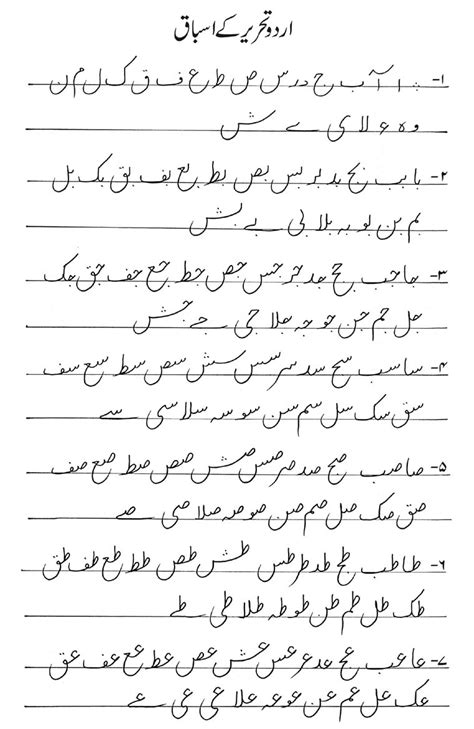 اردو تحریر کے اسباق
۱- ا آ ب ج د ر س ص ط ر ع ف ق ک ل م ن
و ہ ء لا ی ے ش
۲- با بب بج بد بر بس بص بط بر بع بف بق بک بل
بم بن بو بہ بلا بی بے بش
۳- حا حب حج حد حر حس حص حط حع حف حق حک
حل حم حن حو حہ حلا حی حے حش
۴- سا سب سج سد سر سس سش سص سط سع سف
سق سک سل سم سن سو سہ سلا سی سے
۵- صا صب صج صد صر صس صش صص صط صع صف
صق صک صل صم صن صو صہ صلا صی صے
۶- طا طب طج طد طر طس طش طص طط طع طف طق
طک طل طم طن طو طہ طلا طی طے
۷- عا عب عج عد عر عس عش عص عط عع عف عق
عک عل عم عن عو عہ علا عی عے